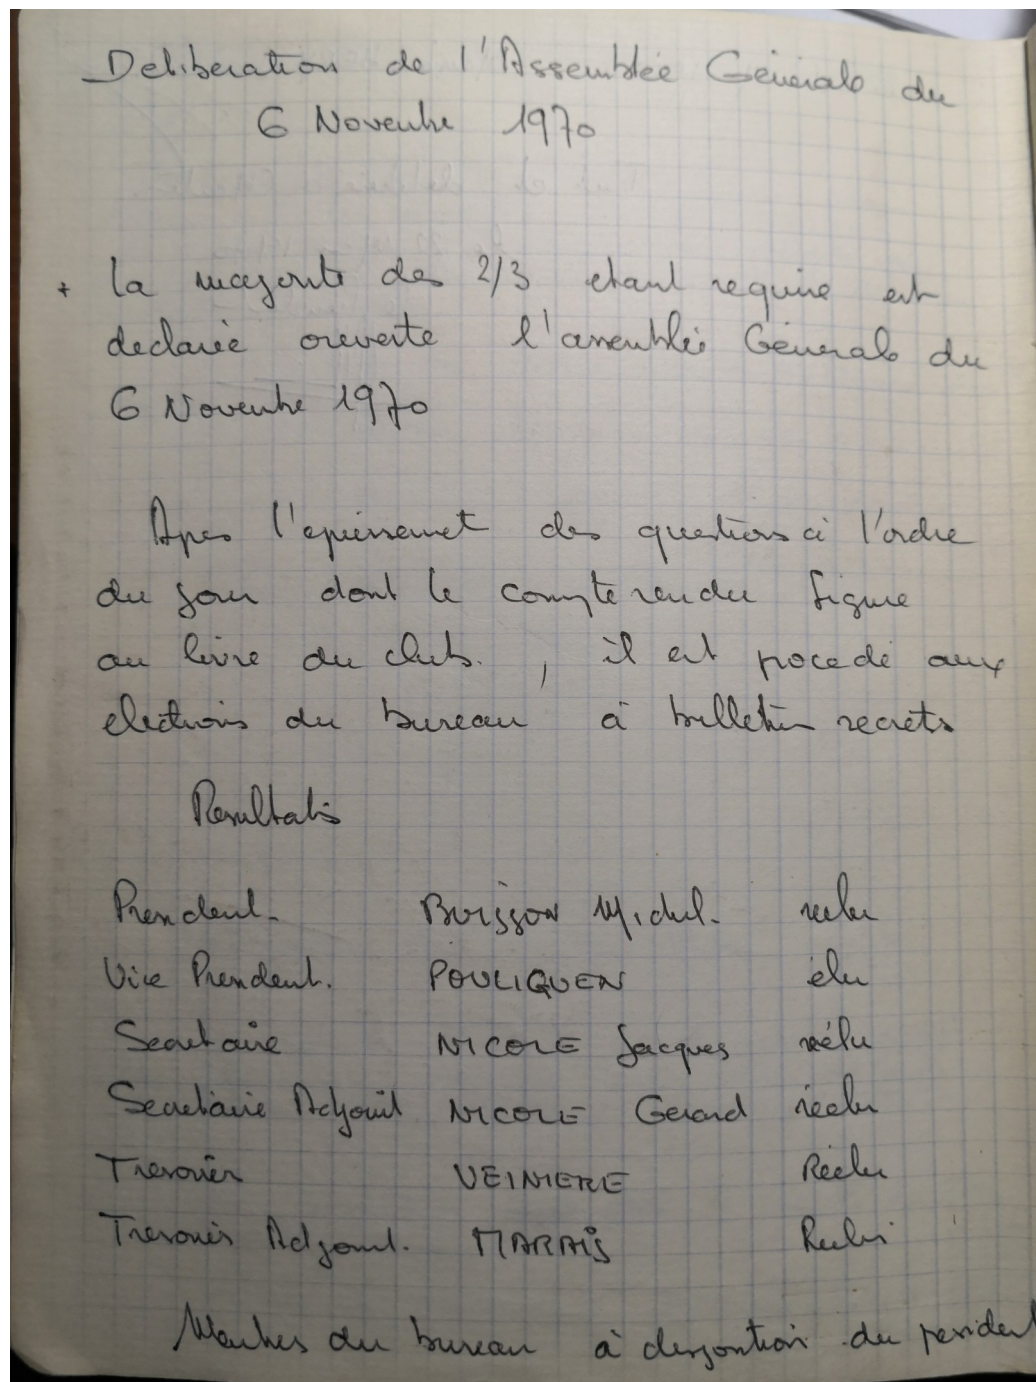 Deliberation de l'Assemblée Générale du
6 Novembre 1970
+ la majorité des 2/3 etant requise est
declarée ouverte l'assemblée Générale du
6 Novembre 1970
Apres l'epuisement des questions à l'ordre
du jour dont le compte rendu figure
au livre du club. , il est procedé aux
elections du bureau à bulletin secrets
Resultats
President. BUISSON Michel. reelu
Vice President. POULIQUEN élu
Secretaire NICOLE Jacques réélu
Secretaire Adjoint NICOLE Gerard réelu
Tresorier VEINIERE Réelu
Tresorier Adjoint. MARAIS Reelu
Membres du bureau à du president